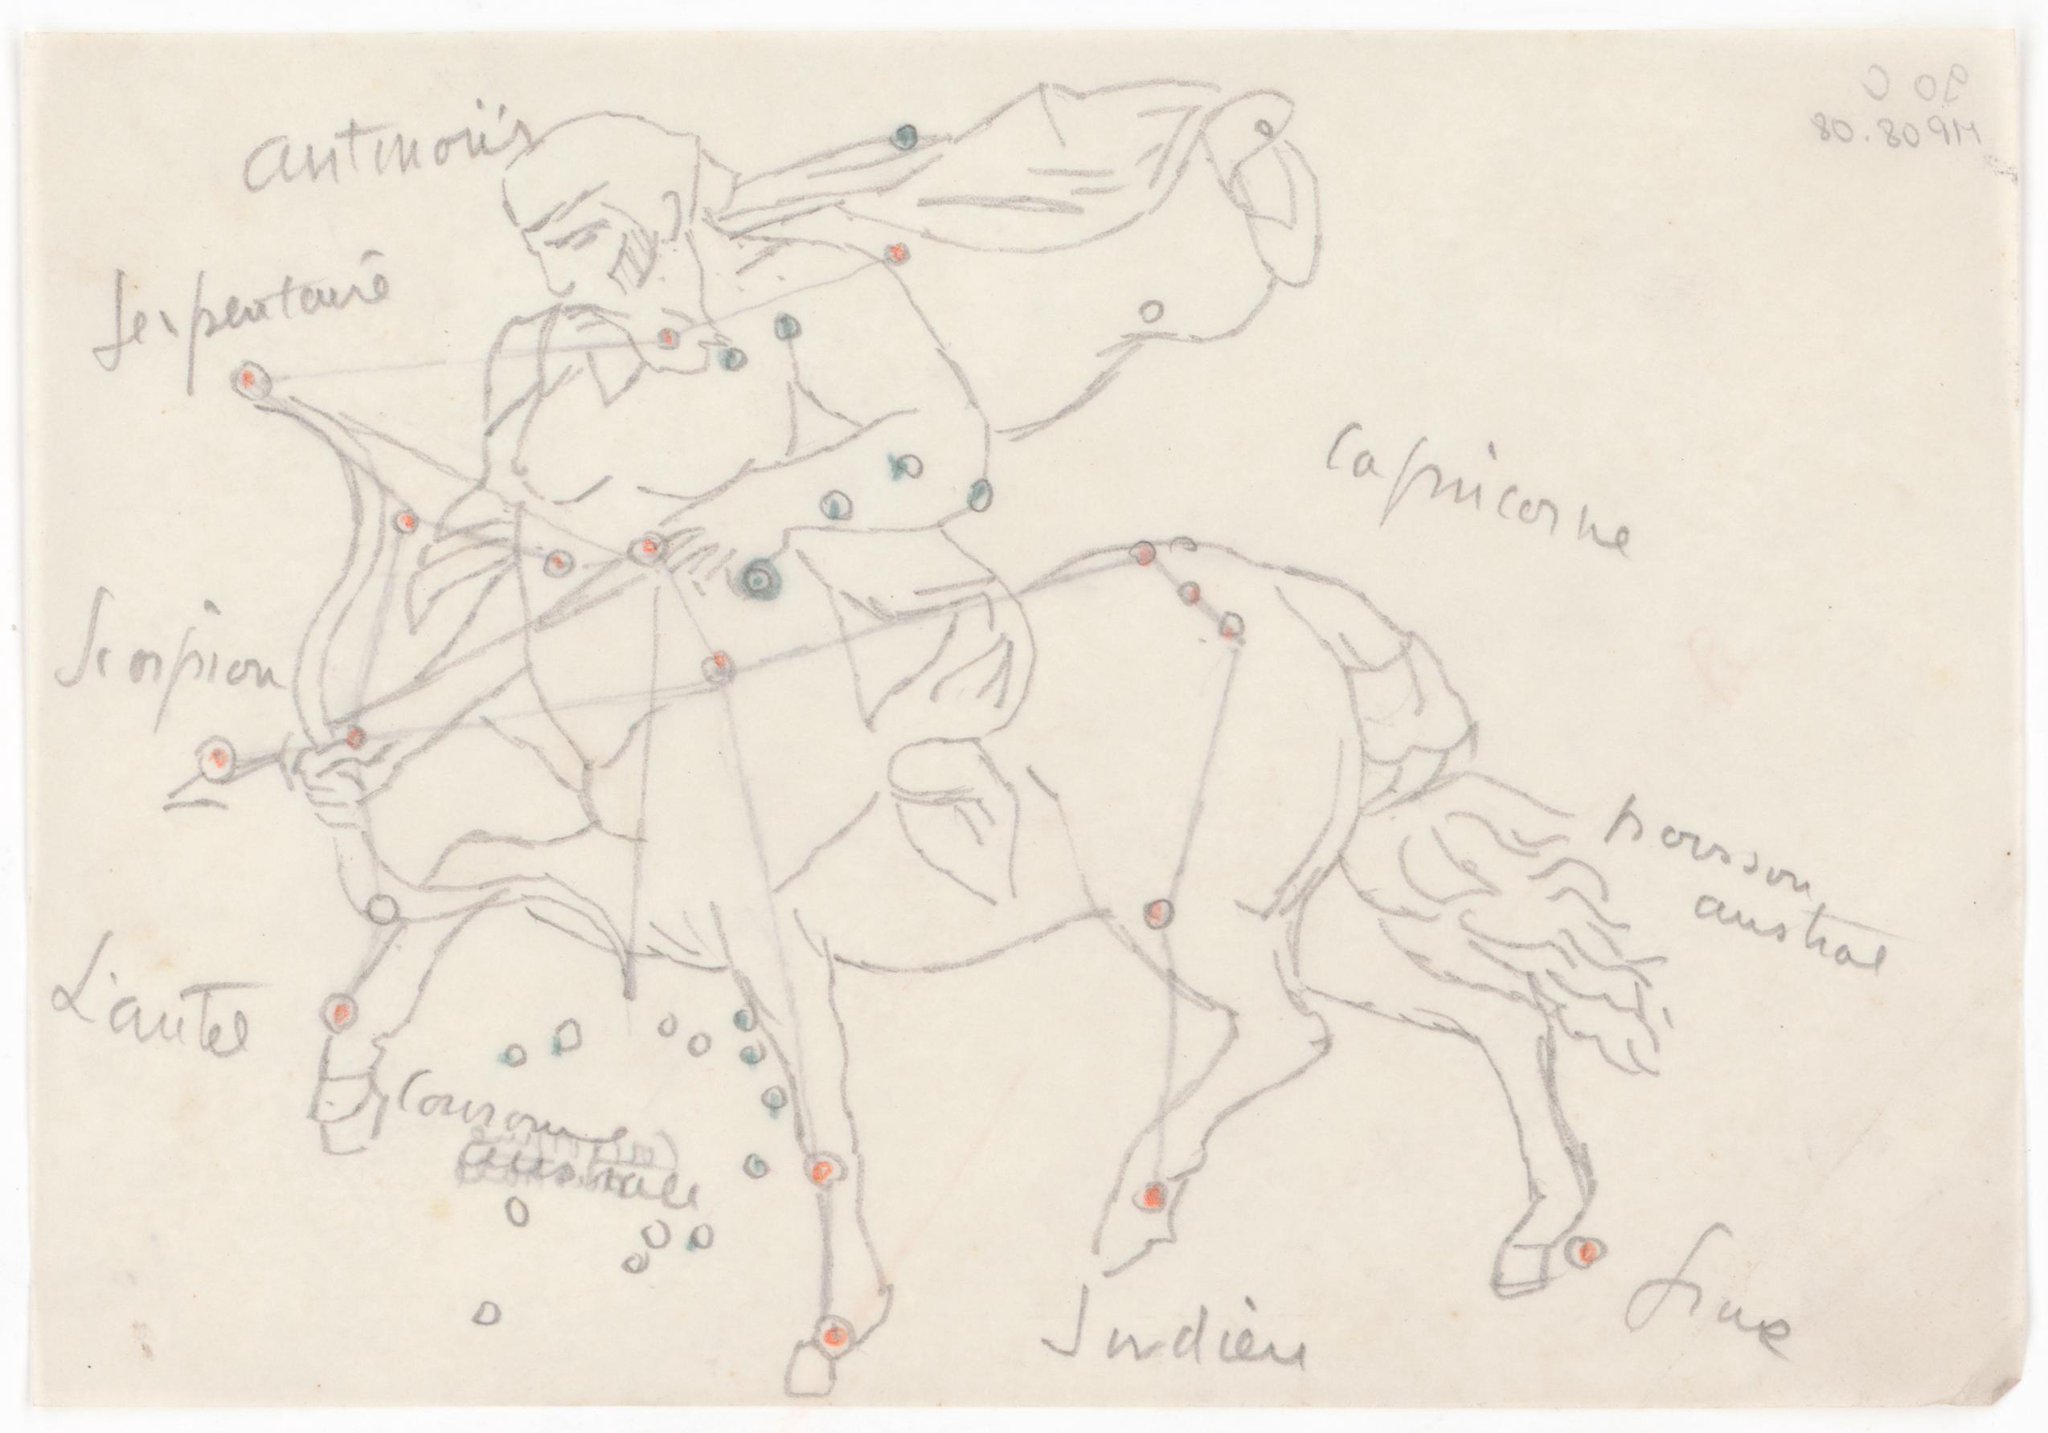 antinoüs
Serpentaire
Capricorne
Scorpion
poisson
austral
L'autel
Couronne
australe
Indien
Grue